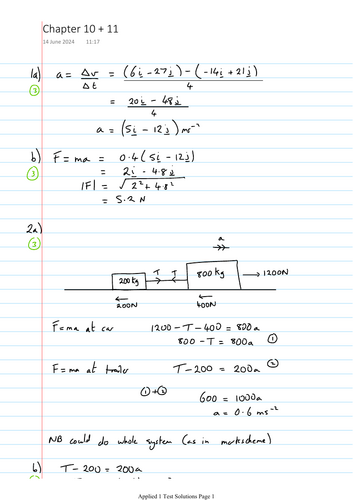 Chapter 10 + 11
14 June 2024 11:17
1a) a = Δv/Δt = ((6i - 27j) - (-14i + 21j))/4
③
= (20i - 48j)/4
a = (5i - 12j) ms⁻²
b) F = ma = 0.4(5i - 12j)
③ = 2i - 4.8j
|F| = √(2² + 4.8²)
= 5.2 N
2a)
③
a
200kg T T 800kg 1200N
200N 400N
F=ma at car 1200 - T - 400 = 800a
800 - T = 800a ①
F=ma at trailer T - 200 = 200a ②
①+② 600 = 1000a
a = 0.6 ms⁻²
NB could do whole system (as in markscheme)
b) T - 200 = 200a
Applied 1 Test Solutions Page 1